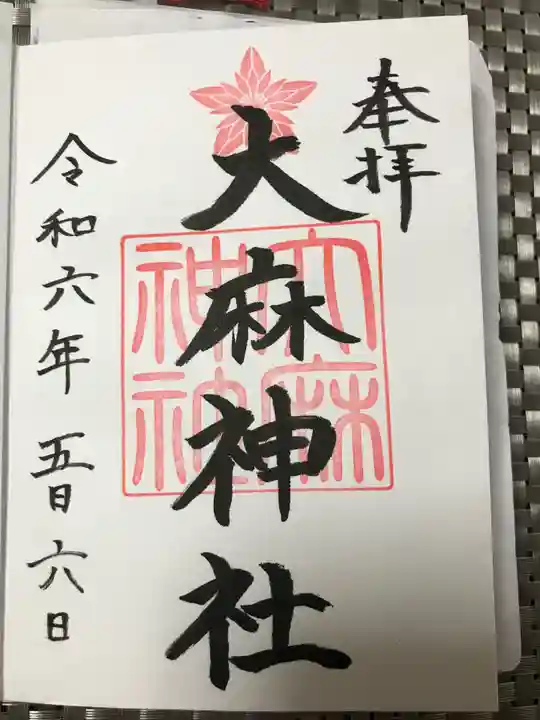 奉拝
大麻神社
大麻
神社
令和六年 五月六日